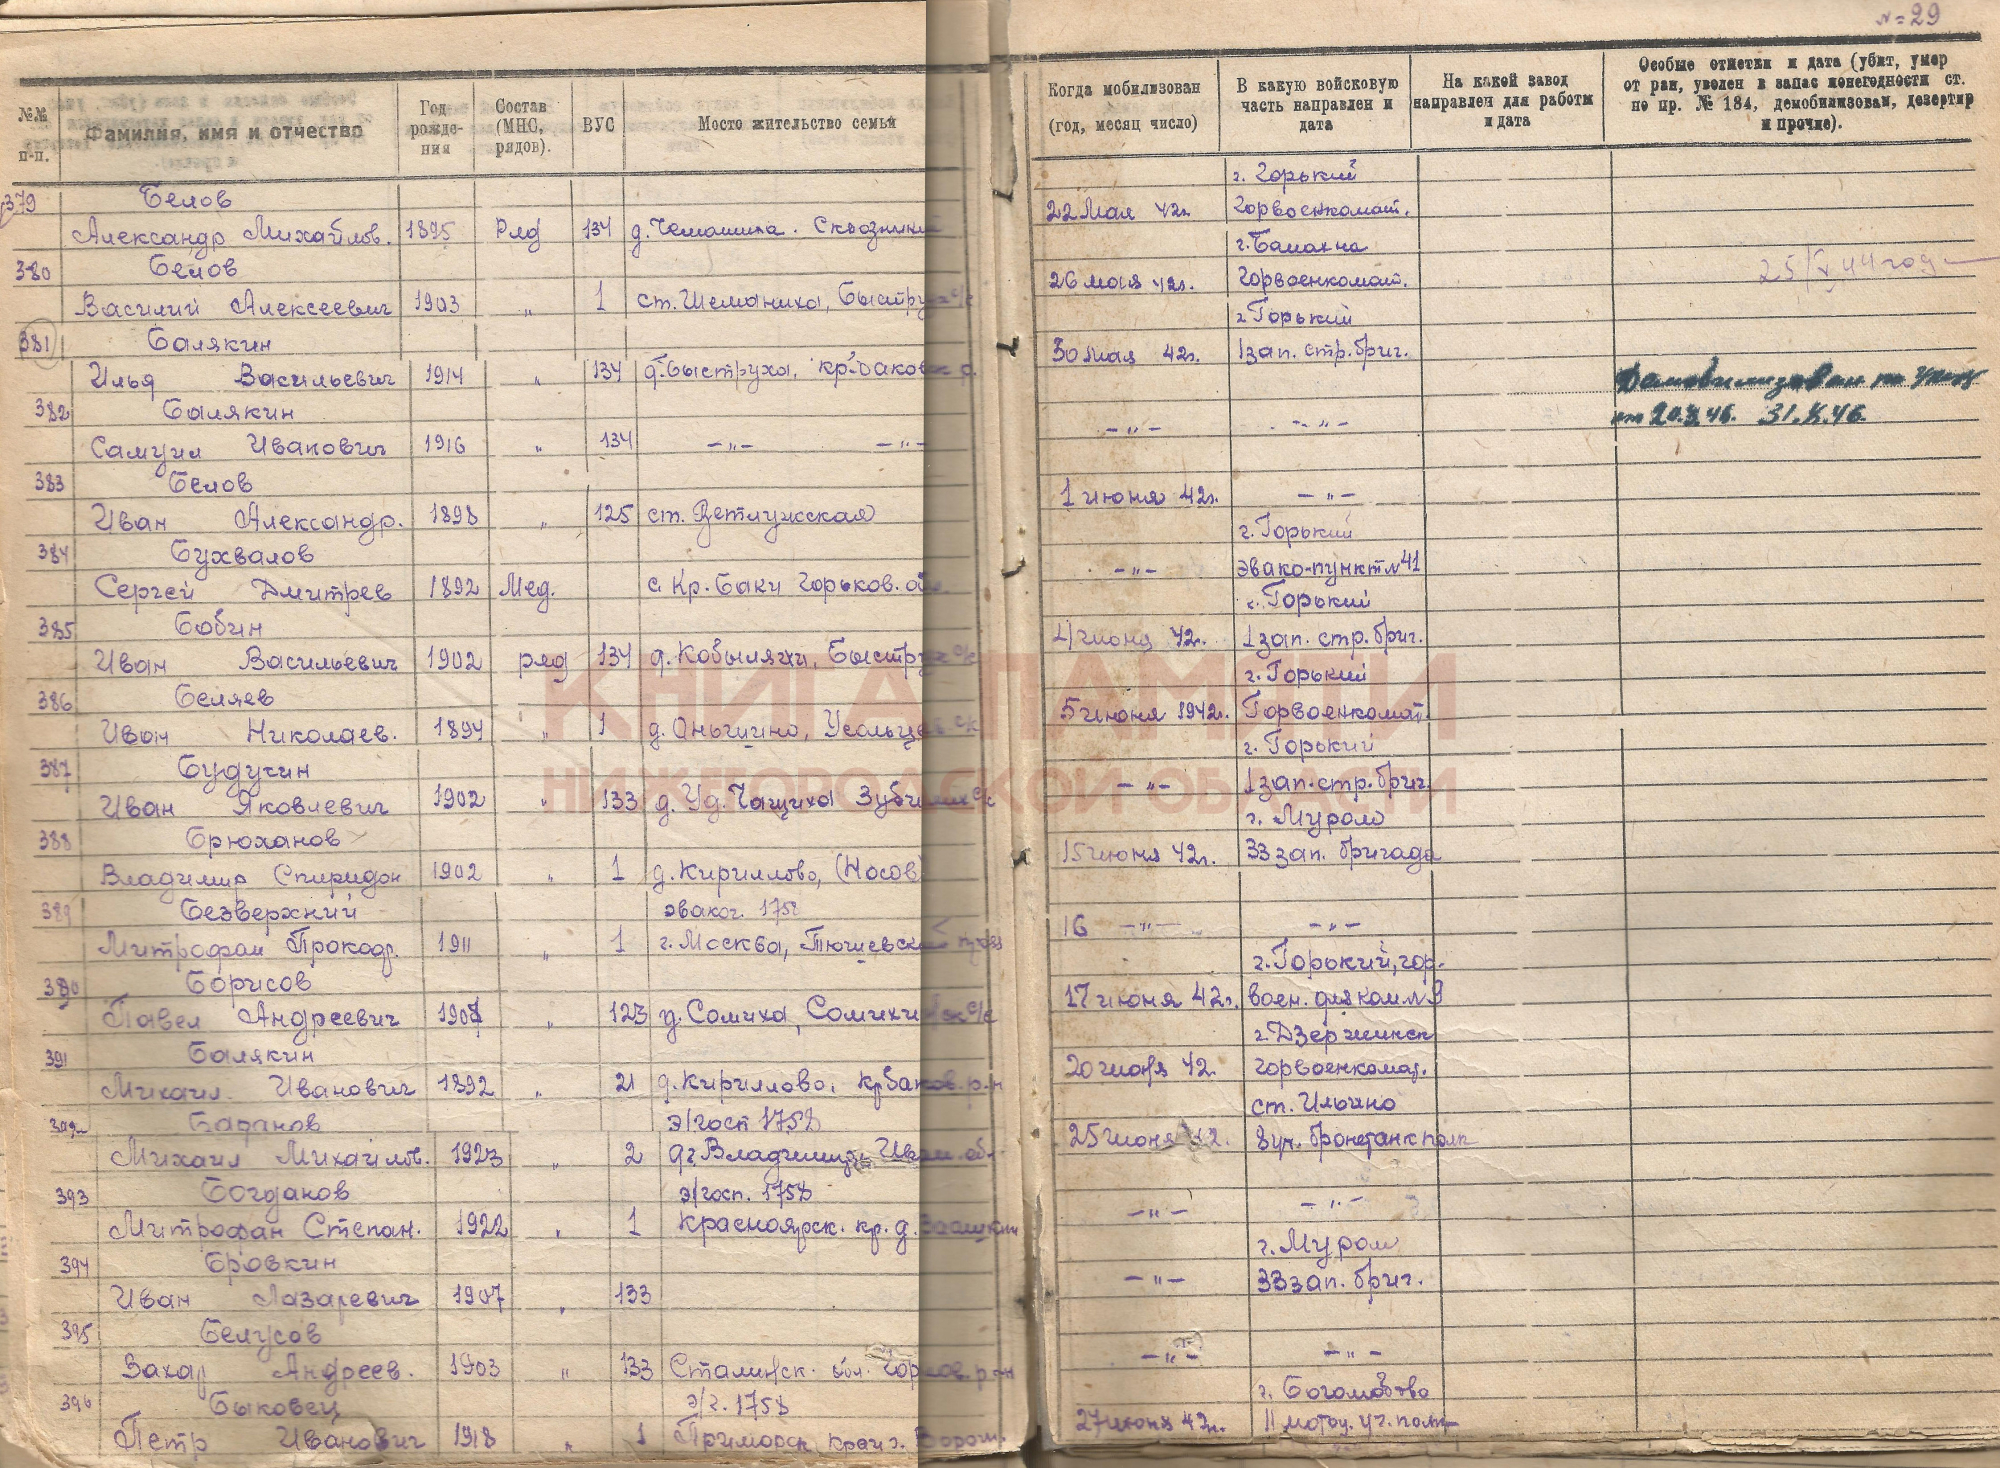 № 29
№№ п-п.
Фамилия, имя и отчество
Год рожде-ния
Состав (МНС, рядов).
ВУС
Мосто жительство семьи
Когда мобилизован (год, месяц число)
В какую войсковую часть направлен и дата
На какой завод направлен для работы и дата
Особые отметки и дата (убит, умер от ран, уволен в запас понегодности ст. по пр. № 184, демобилизован, дезертир и прочие).
379 Белов г. Горький
Александр Михайлов. 1895 Ряд 134 д. Чемашиха. 22 Мая 42г. Горвоенкомат.
380 Белов г. Балахна
Василий Алексеевич 1903 „ 1 ст. Шеманиха, 26 мая 42г. Горвоенкомат. 25/V 44 год
381 Балякин г Горький
Илья Васильевич 1914 „ 134 д. Быструха, кр. Баковск р. 30 мая 42г. 1 зап. стр. бриг.
382 Балякин Демобилизован по указу
Самуил Иванович 1916 „ 134 –„– –„– –„– –„– от 20.X 46. 31.X.46.
383 Белов
Иван Александр. 1898 „ 125 ст. Ветлужская 1 июня 42г. –„–
384 Бухвалов г. Горький
Сергей Дмитрев 1892 Мед. с. Кр. Баки Горьков. –„– эвако-пункт №41
385 Бобин г. Горький
Иван Васильевич 1902 ряд 134 д. Кобыляхи, 4 июня 42г. 1 зап. стр. бриг.
386 Беляев г. Горький
Иван Николаев. 1894 „ 1 д. 5 июня 1942г. Горвоенкомат.
387 Будучин г. Горький
Иван Яковлевич 1902 „ 133 д. Уд. Чащиха –„– 1 зап. стр. бриг.
388 Брюханов г. Муром
Владимир Спиридон 1902 „ 1 д. Кириллово, (Носов) 15 июня 42г. 33 зап. бригада
389 Безверхний эваког. 1758
Митрофан Прокоф. 1911 „ 1 г. Москва, 16 –„– –„–
390 Борисов г. Горький, гор.
Павел Андреевич „ 123 д. Сомиха, 17 июня 42г. воен. №9
391 Балякин г. Дзержинск
Михаил Иванович 1892 „ 21 д. Кириллово, кр Баков. р-н 20 июня 42. горвоенкомат.
392 Баданов э/госп 1758 ст. Ильино
Михаил Михайлов. 1923 „ 2 25 июня 42. 8 уч. бронетанк полк
393 Богданов э/госп. 1758
Митрофан Степан. 1922 „ 1 Красноярск. кр. д. –„– –„–
394 Бровкин г. Муром
Иван Лазаревич 1907 „ 133 –„– 33 зап. бриг.
395 Белусов
Захар Андреев. 1903 „ 133 Сталинск. обл. –„– –„–
396 Быковец э/г. 1758 г.
Петр Иванович 1918 „ 1 Приморск край г. Ворош. 27 июня 42г. 11 мотоц. уч. полк
КНИГА ПАМЯТИ
НИЖЕГОРОДСКОЙ ОБЛАСТИ